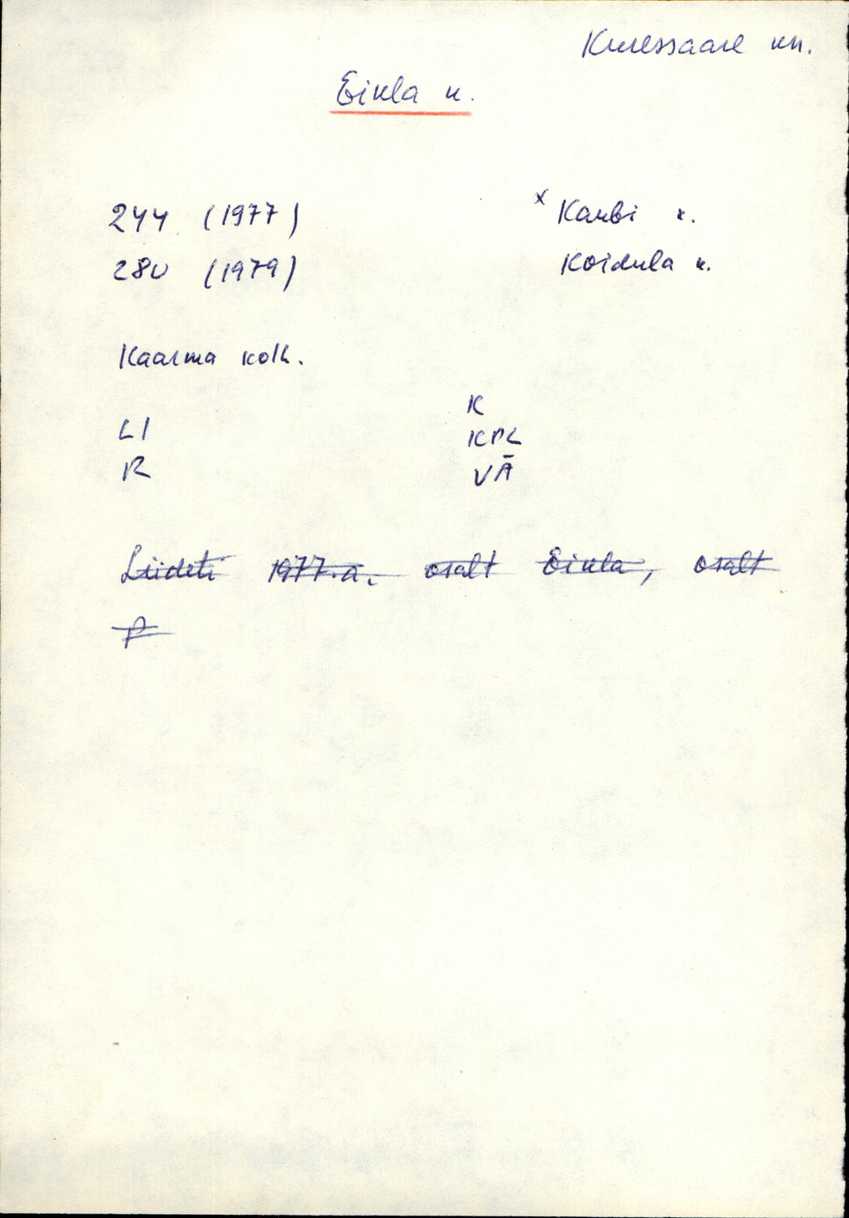 Kuressaare kn.
Eikla k.
244 (1977)
x Kaubi k.
280 (1979)
Koidula k.
Kaarma kolh.
K
LI
KPL
R
VÄ
Liideti 1977. a. osalt Eikla, osalt
P